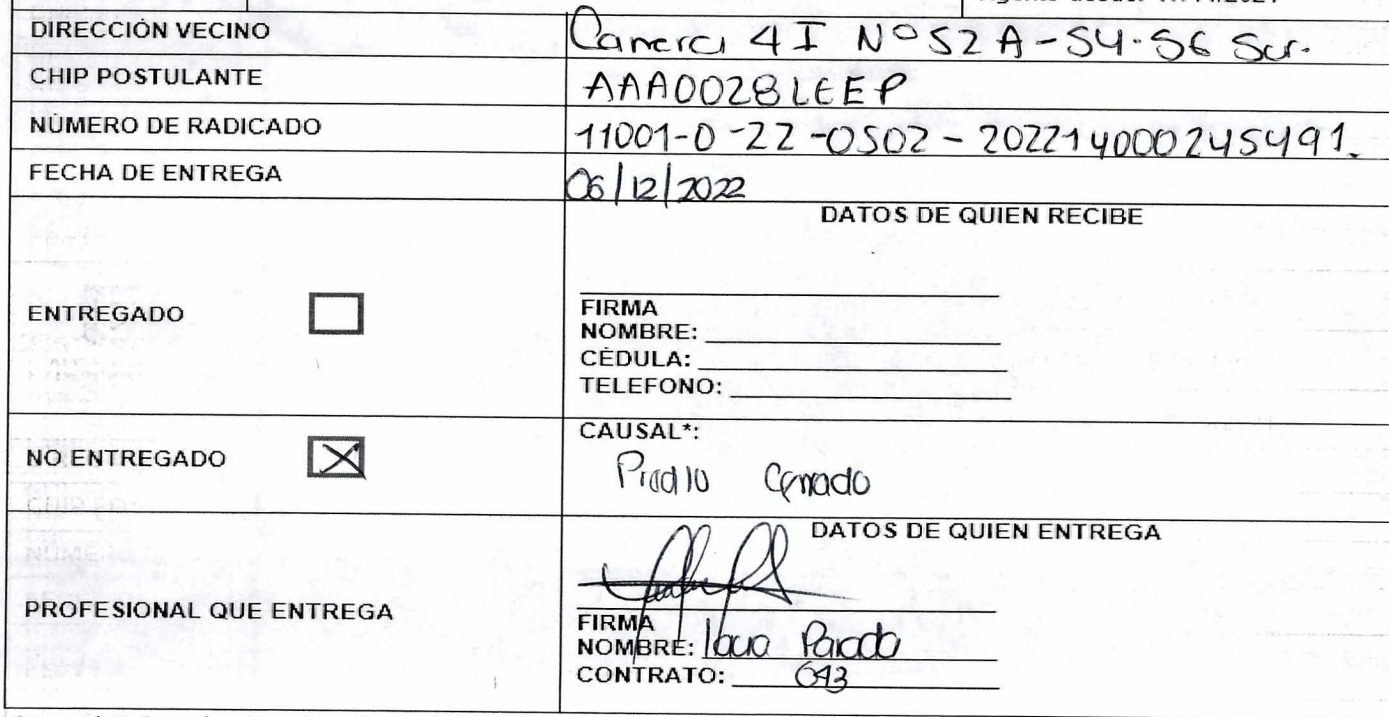 DIRECCIÓN VECINO Carrera 4 I Nº 52 A - 54-56 Sur.
CHIP POSTULANTE AAA0028LEEP
NÚMERO DE RADICADO 11001-0-22-0502-202214000245491.
FECHA DE ENTREGA 06/12/2022
DATOS DE QUIEN RECIBE
ENTREGADO
FIRMA
NOMBRE:
CÉDULA:
TELEFONO:
NO ENTREGADO
CAUSAL*:
Predio Cerrado
DATOS DE QUIEN ENTREGA
PROFESIONAL QUE ENTREGA
FIRMA
NOMBRE: Laura Parada
CONTRATO: 643